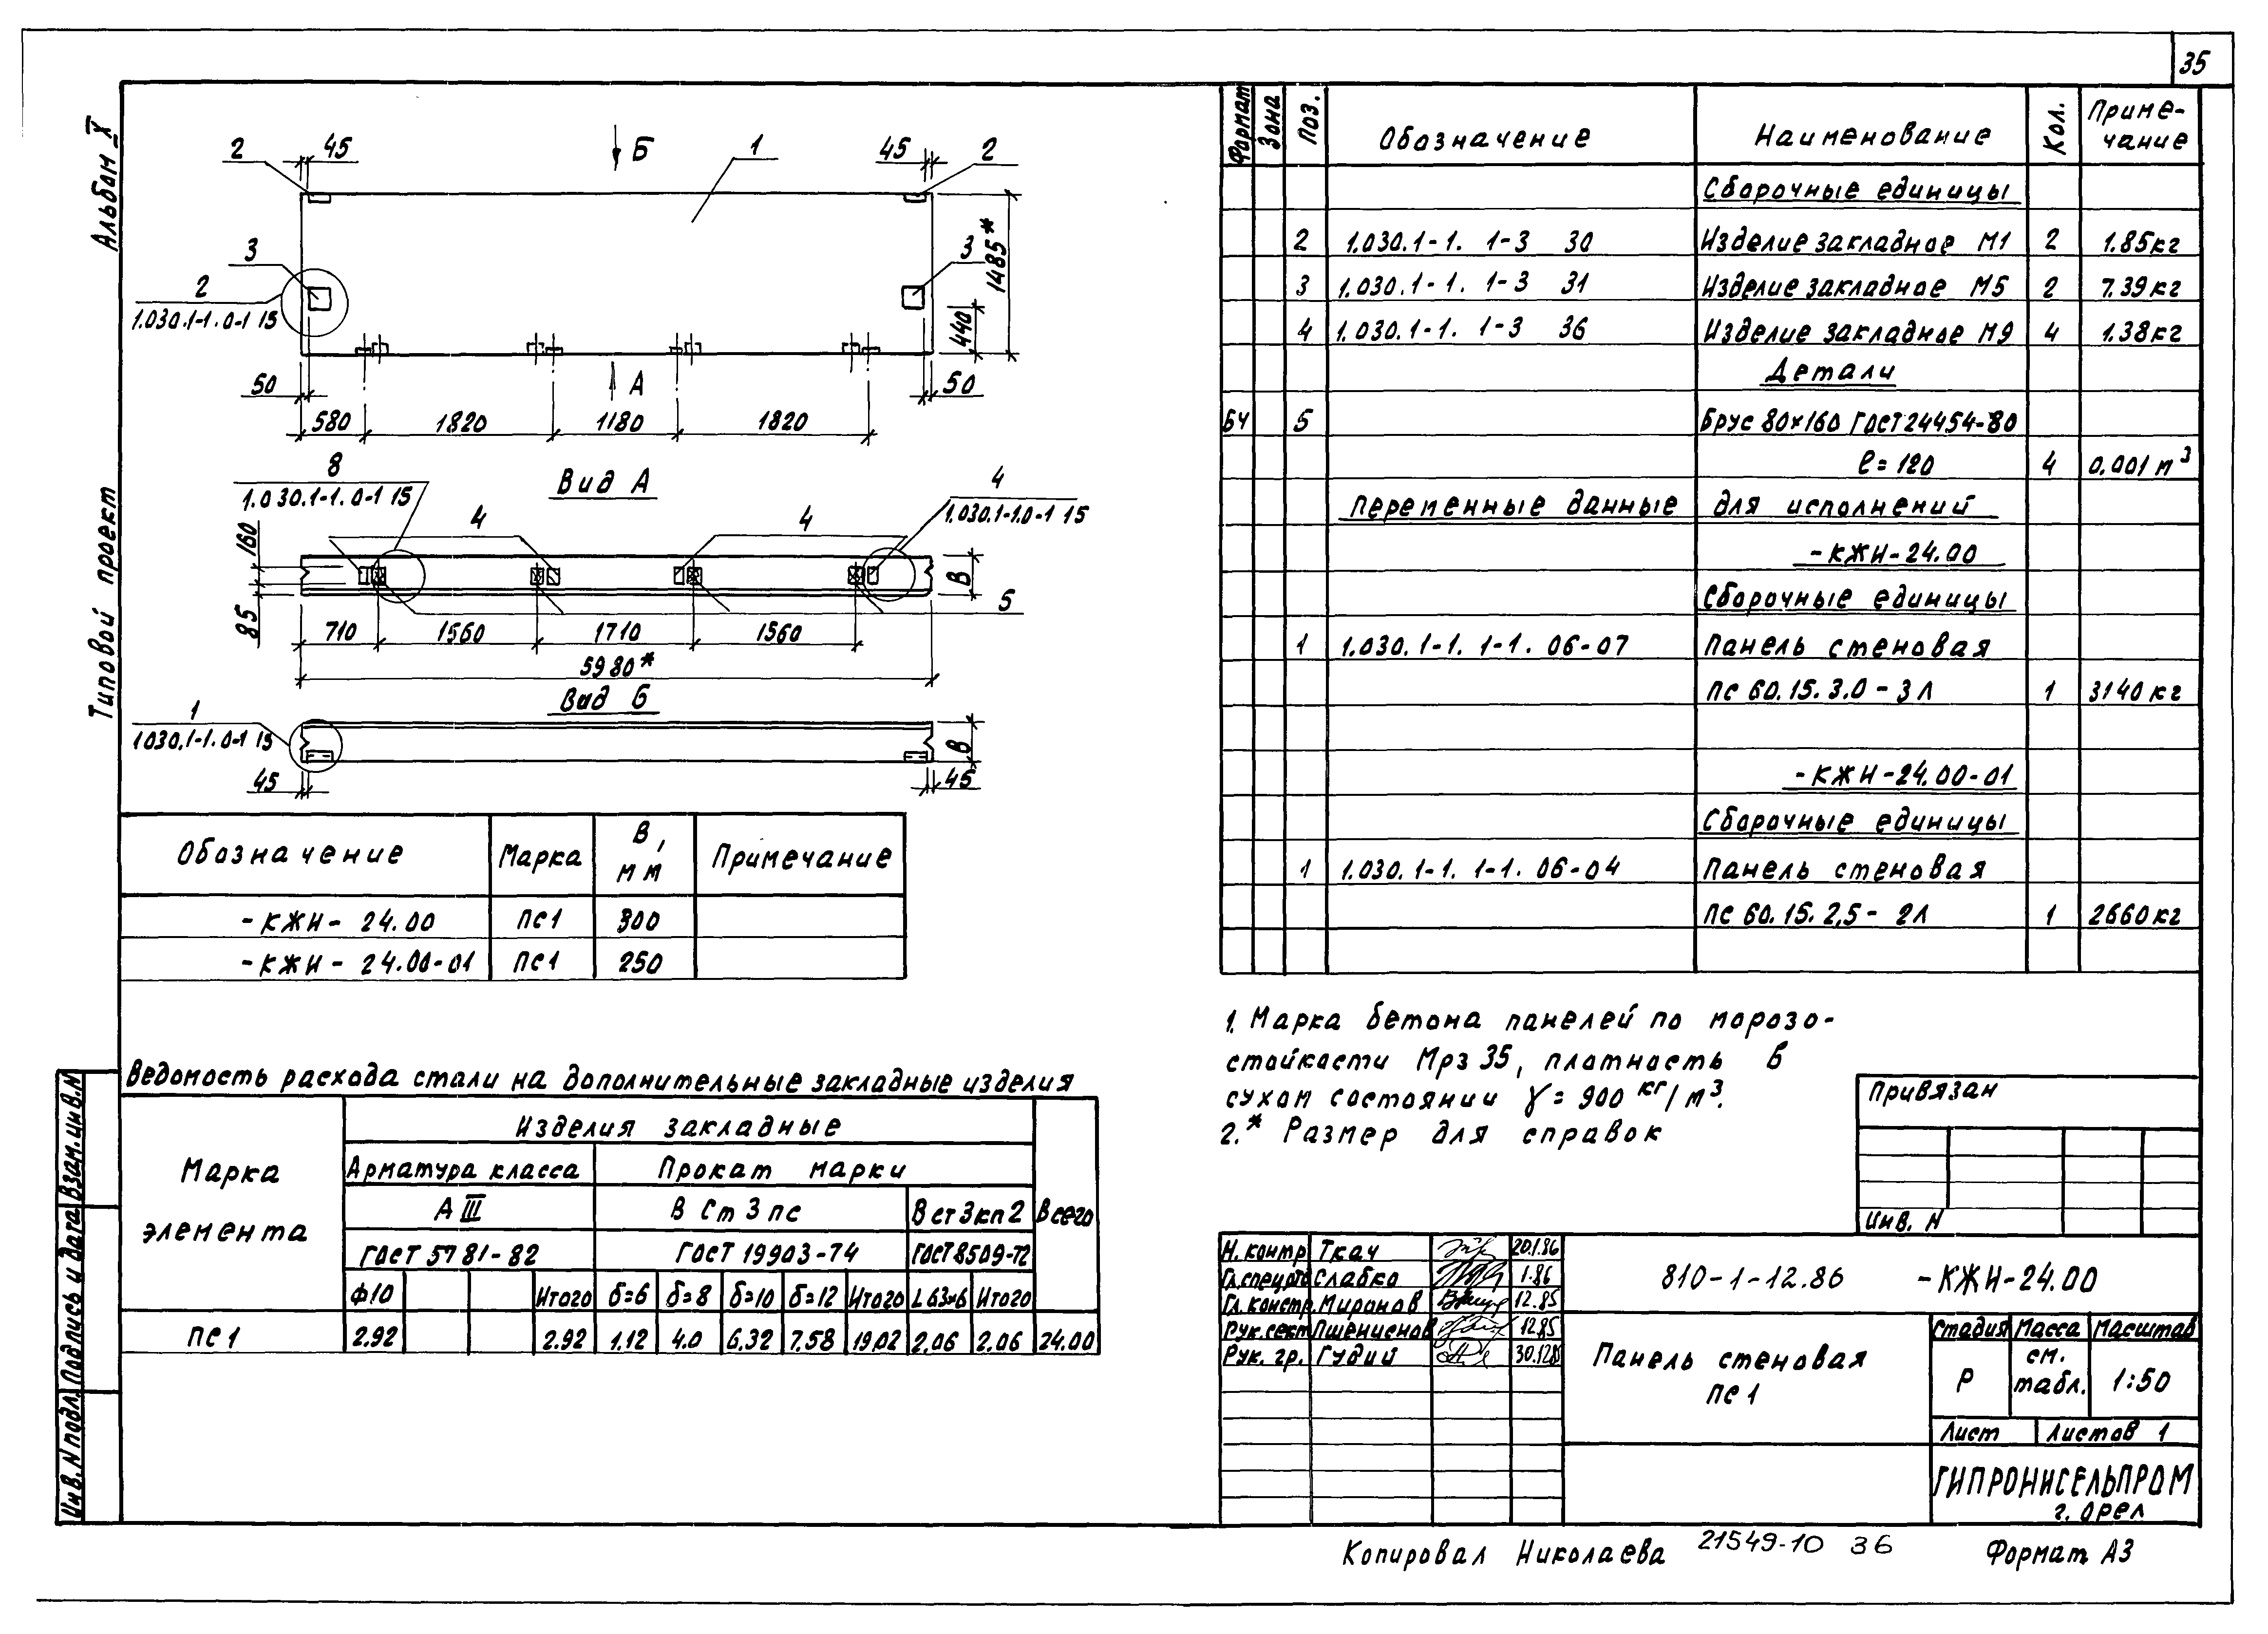 35
Альбом X
Типовой проект
2 45 Б 1 45 2
3 3
2
1.030.1-1.0-1 15
1485*
440
50 А 50
580 1820 1180 1820
8 Вид А 4
1.030.1-1.0-1 15 4 4 1.030.1-1.0-1 15
160
85
В
5
710 1560 1710 1560
5980*
Вид Б
1
1.030.1-1.0-1 15
В
45 45
Обозначение Марка В, мм Примечание
-КЖИ- 24.00 ПС1 300
-КЖИ- 24.00-01 ПС1 250
Ведомость расхода стали на дополнительные закладные изделия
Марка элемента Изделия закладные Всего
Арматура класса Прокат марки
А III В Ст 3 пс В ст 3 кп 2
ГОСТ 5781-82 ГОСТ 19903-74 ГОСТ 8509-72
ф10 Итого δ=6 δ=8 δ=10 δ=12 Итого L 63×6 Итого
ПС1 2.92 2.92 1.12 4.0 6.32 7.58 19.02 2.06 2.06 24.00
Формат Зона Поз. Обозначение Наименование Кол. Приме-
чание
Сборочные единицы
2 1.030.1-1. 1-3 30 Изделие закладное М1 2 1.85кг
3 1.030.1-1. 1-3 31 Изделие закладное М5 2 7.39кг
4 1.030.1-1. 1-3 36 Изделие закладное М9 4 1.38кг
Детали
БЧ 5 Брус 80×160 ГОСТ 24454-80
ℓ=120 4 0.001 м³
Переменные данные для исполнений
-КЖИ-24.00
Сборочные единицы
1 1.030.1-1. 1-1. 06-07 Панель стеновая
ПС 60.15.3.0-3Л 1 3140кг
-КЖИ-24.00-01
Сборочные единицы
1 1.030.1-1. 1-1. 06-04 Панель стеновая
ПС 60.15.2,5-2Л 1 2660кг
1. Марка бетона панелей по морозо-
стойкости Мрз 35, плотность в
сухом состоянии γ= 900 кг/м³.
2.* Размер для справок
Привязан
Инв. N
Н.контр Ткач 20.1.86
Гл.спецотд Слабко 1.86
Гл.констр. Миронов 12.85
Рук.сект Пшениснов 12.85
Рук. гр. Гудий 30.12.85
810-1-12.86 -КЖИ-24.00
Панель стеновая
ПС1
Стадия Масса Масштаб
Р см. табл. 1:50
Лист Листов 1
ГИПРОНИСЕЛЬПРОМ
г. Орел
Инв. N подл. Подпись и дата Взам. инв. N
Копировал Николаева 21549-10 36 Формат А3